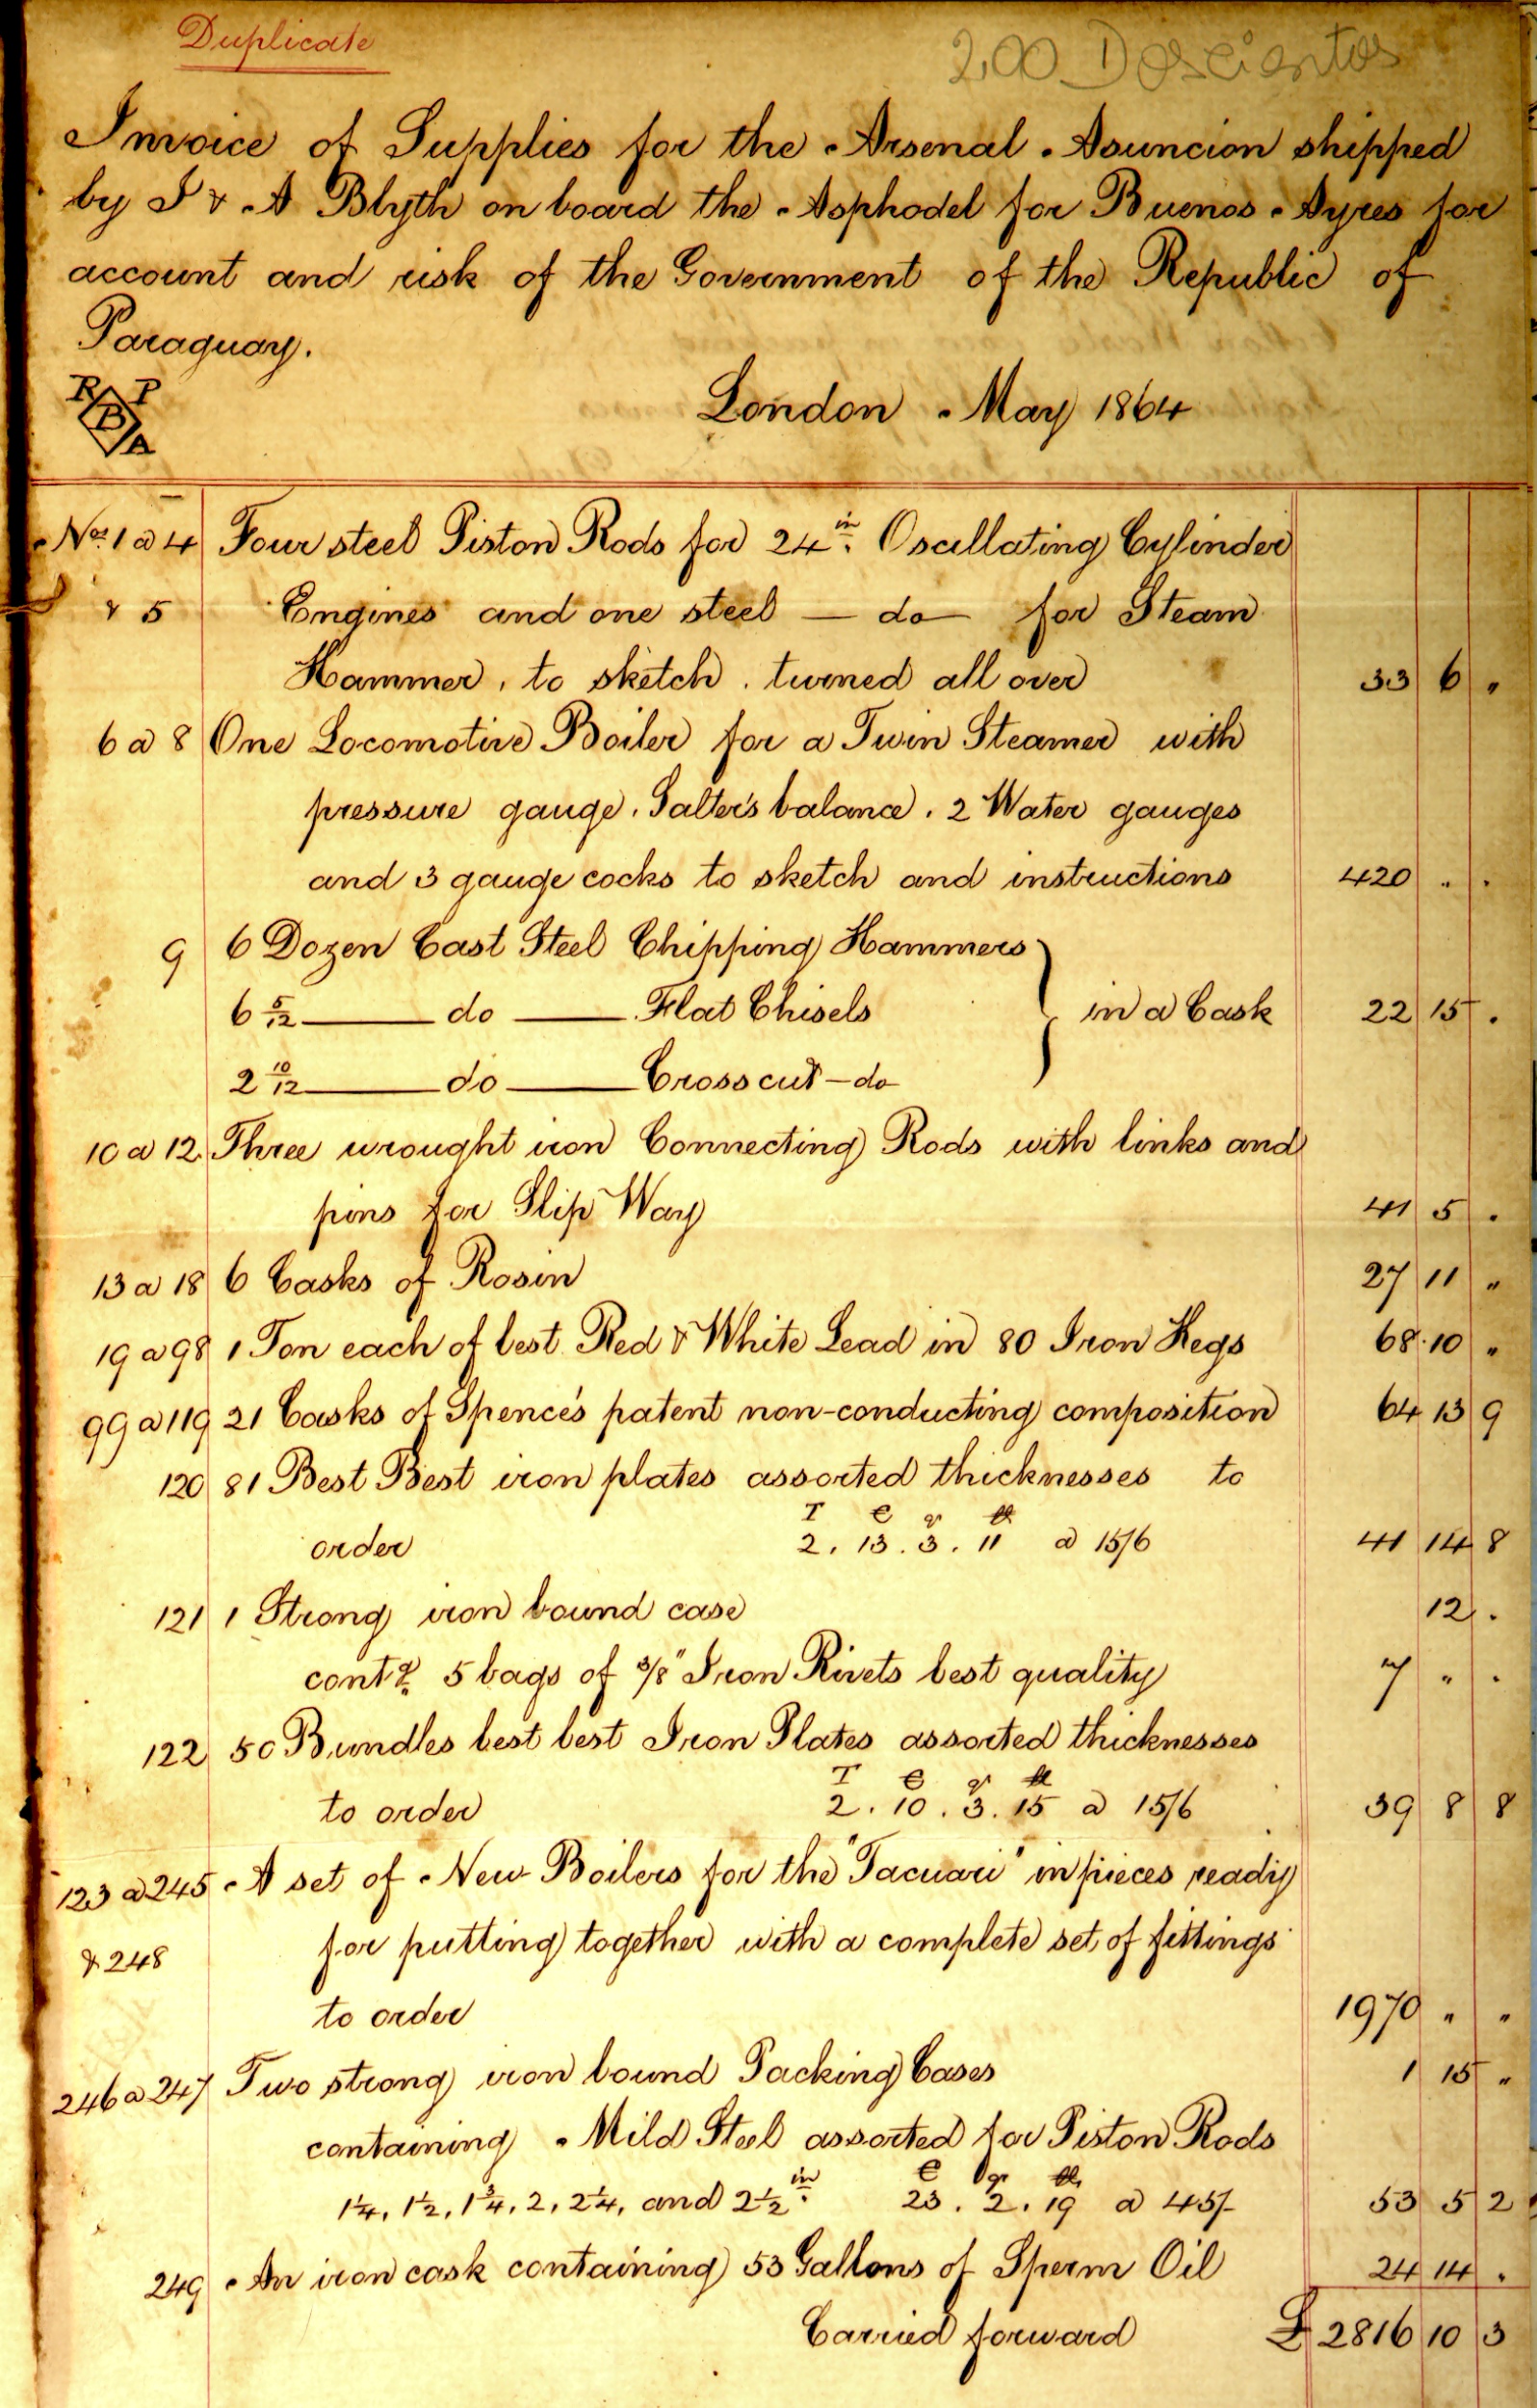 Duplicate
200 Doscientos
Invoice of Supplies for the Arsenal Asuncion shipped
by J & A Blyth on board the Asphodel for Buenos Ayres for
account and risk of the Government of the Republic of
Paraguay.
R P
B
A
London May 1864
Nos. 1 a 4 Four steel Piston Rods for 24 in. Oscillating Cylinder
& 5 Engines and one steel — do — for Steam
Hammer, to sketch. turned all over 33 6 "
6 a 8 One Locomotive Boiler for a Twin Steamer with
pressure gauge. Salter's balance. 2 Water gauges
and 3 gauge cocks to sketch and instructions 420 . .
9 6 Dozen Cast Steel Chipping Hammers
6 5/12 — do — Flat Chisels } in a Cask 22 15 .
2 10/12 — do — Cross cut — do
10 a 12 Three wrought iron Connecting Rods with links and
pins for Slip Way 41 5 .
13 a 18 6 Casks of Rosin 27 11 "
19 a 98 1 Ton each of best Red & White Lead in 80 Iron Kegs 68 10 "
99 a 119 21 Casks of Spence's patent non-conducting composition 64 13 9
120 81 Best Best iron plates assorted thicknesses to
T C qr lb
order 2. 13. 3. 11 a 15/6 41 14 8
121 1 Strong iron bound case 12 .
contg. 5 bags of 3/8" Iron Rivets best quality 7 " .
122 50 Bundles best best Iron Plates assorted thicknesses
T C qr lb
to order 2. 10. 3. 15 a 15/6 39 8 8
123 a 245 A set of New Boilers for the "Tacuari" in pieces ready
& 248 for putting together with a complete set of fittings
to order 1970 " "
246 a 247 Two strong iron bound Packing Cases 1 15 "
containing Mild Steel assorted for Piston Rods
C qr lb
1 1/4, 1 1/2, 1 3/4, 2, 2 1/4, and 2 1/2 in. 23. 2. 19 a 45/- 53 5 2
249 An iron cask containing 53 Gallons of Sperm Oil 24 14 .
Carried forward £ 2816 10 3